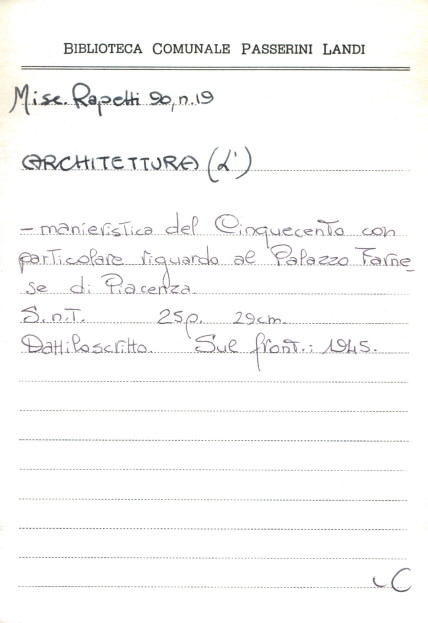 BIBLIOTECA COMUNALE PASSERINI LANDI
Misc. Rapetti 90, n.19
ARCHITETTURA (L')
- manieristica del Cinquecento con
particolare riguardo al Palazzo Farne_
se di Piacenza.
S.n.T. 25p. 29cm.
Dattiloscritto. Sul front.: 1945.